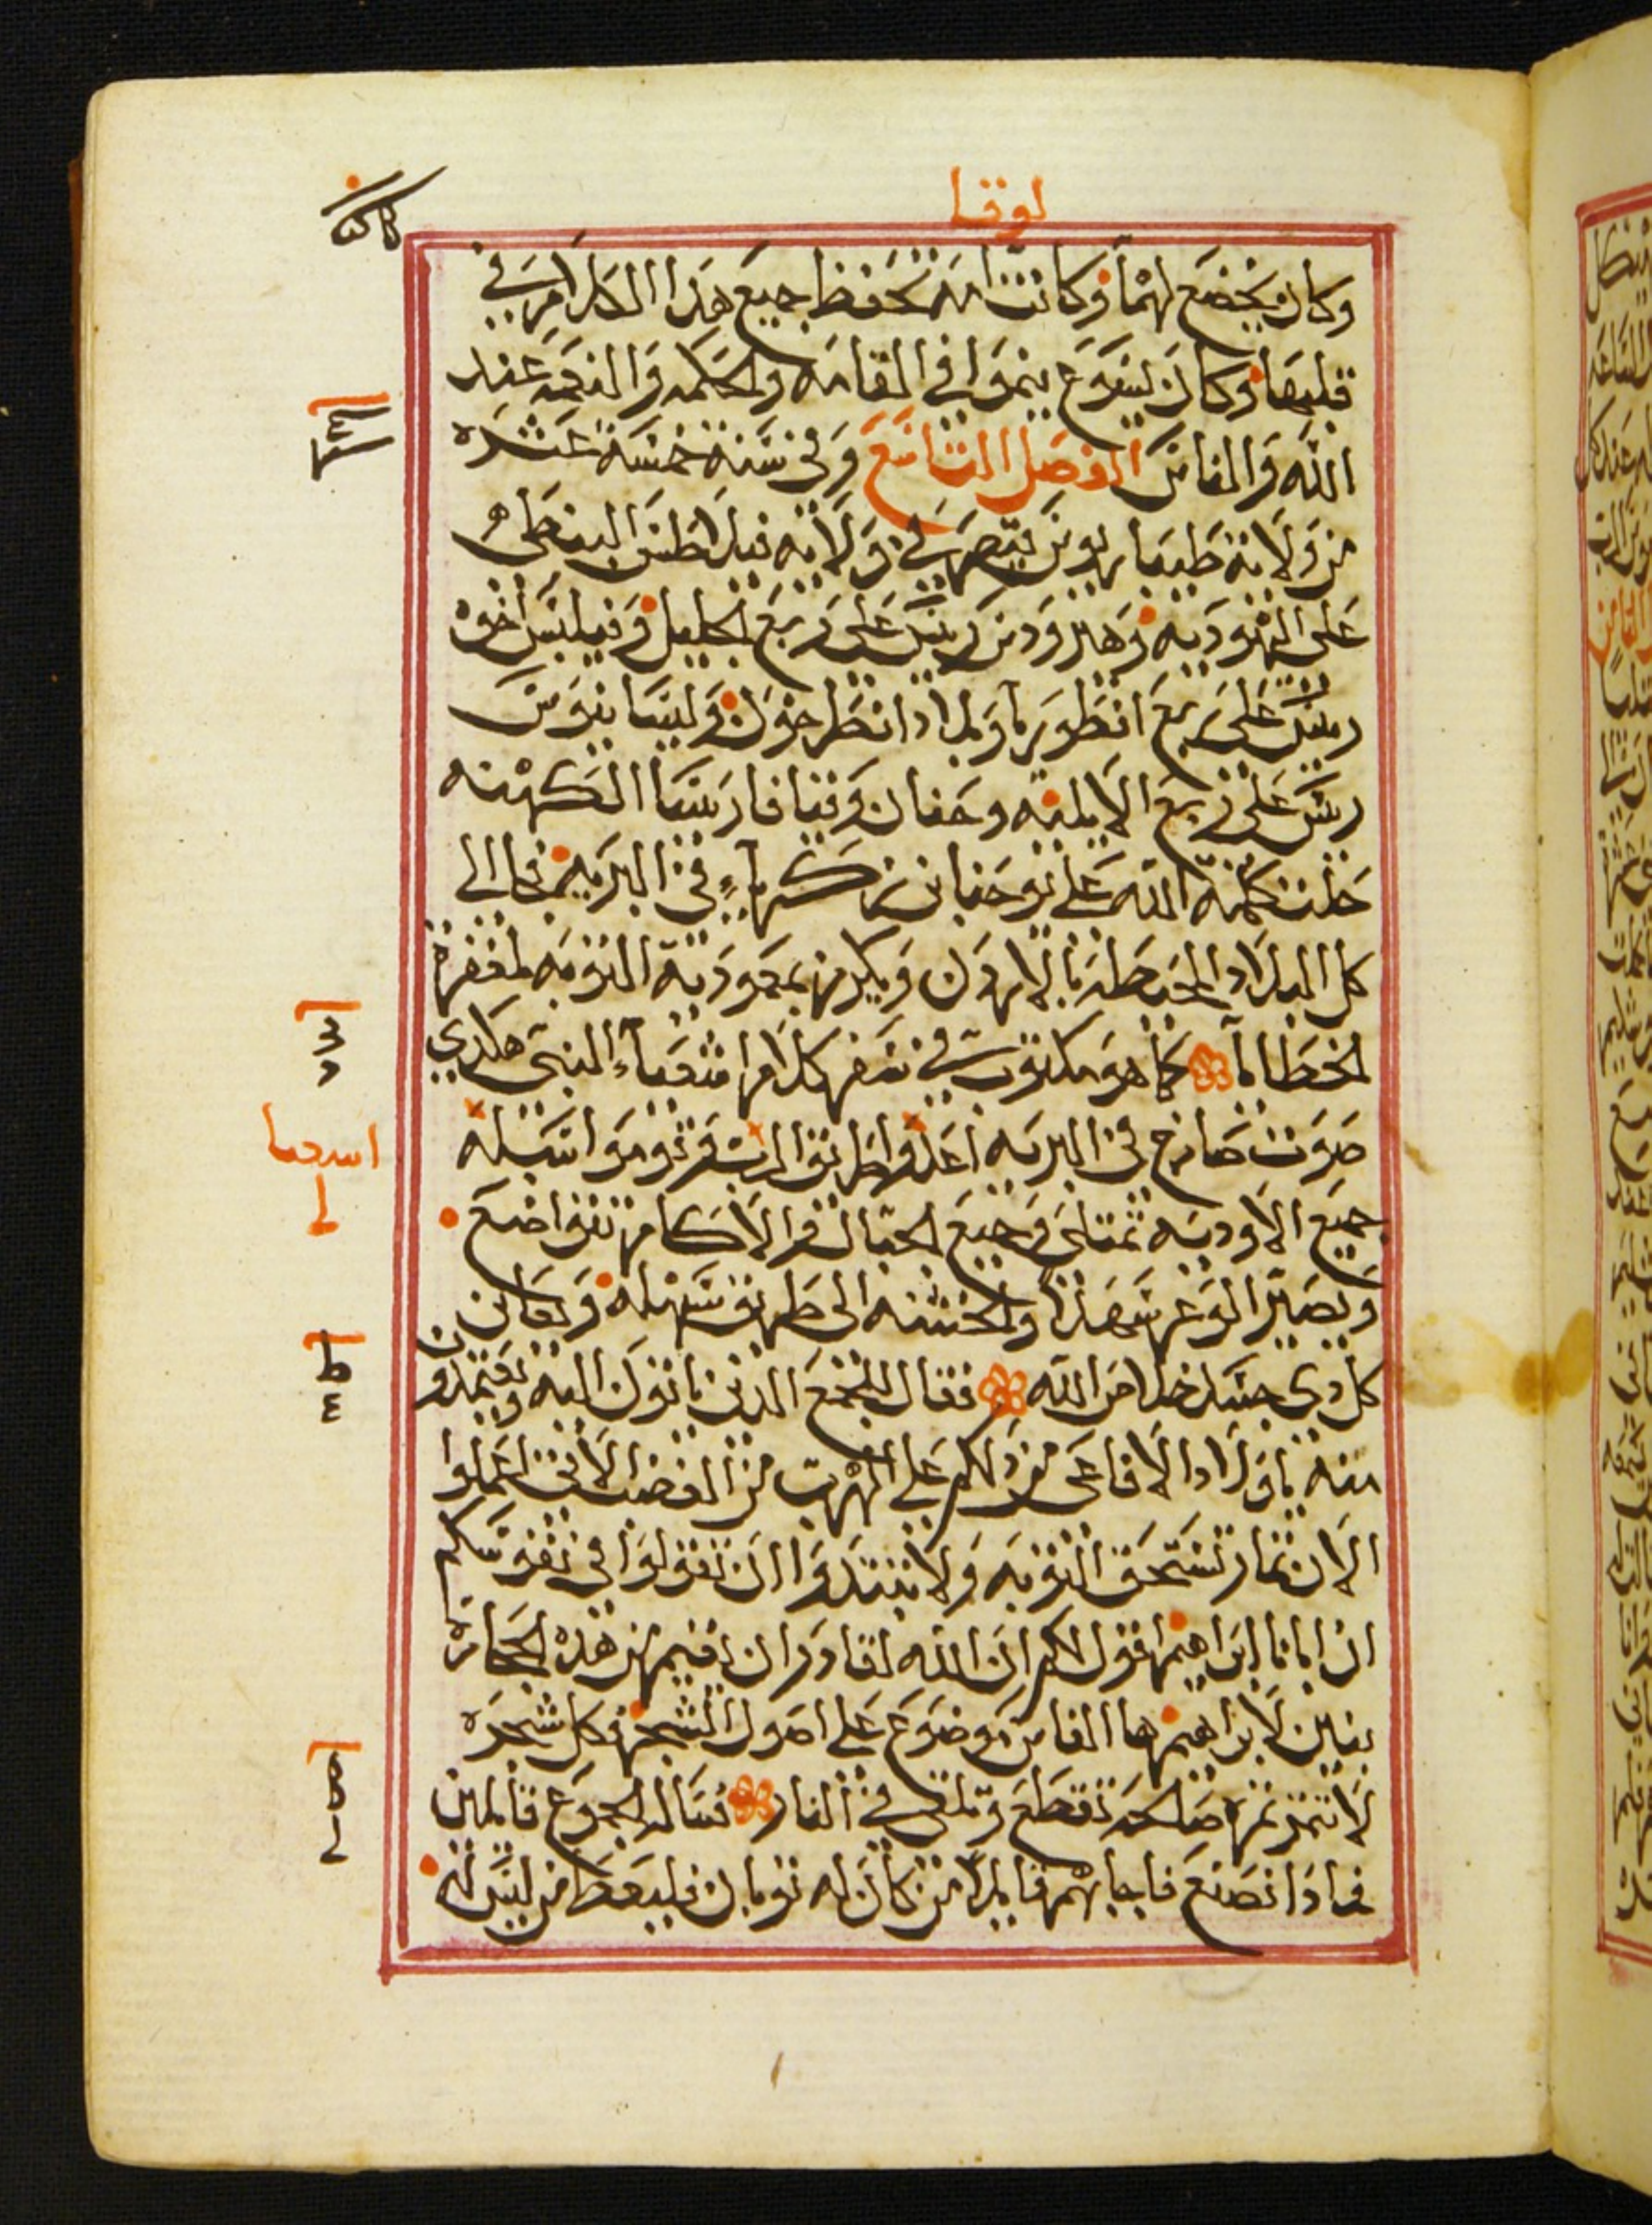 لوقا
وكان يخضع لهما وكانت امه تحفظ جميع هذا الكلام في
قلبها وكان يسوع ينموا في القامه والحكمه والنعمه عند
الله والناس الفصل التاسع وفي سنة خمسة عشره
من ولاية طيباريوس قيصر في ولاية فيلاطس البنطى
على اليهوديه وهيرودس رييس على ربع الجليل وفيلبس اخوه
رييس على ربع انطوريا وبلاد انطراخون وليسانيوس
رييس على ربع الابلينه وحنان وقيافا روسا الكهنه
حلت كلمة الله على يوحنا بن زكريا في البريه فجا الى
كل البلاد المحيطه بالاردن ويكرز بمعموديه التوبه لمغفرة
الخطايا كما هو مكتوب في سفر كلام اشعيا النبى هكدي
صوت صارخ في البريه اعدوا طريق الرب وقوموا سبله
جميع الاوديه تمتلى وجميع الجبال والاكام تتواضع
ويصير الوعر سهلا والخشنه الى طريق سهله ويعاين
كل دى جسد خلاص الله فقال للجمع الدين ياتون اليه ويعتمدون
منه ياولاد الافاعى من دلكم على الهرب من الغضب الاتى اعملوا
الان ثمار تستحق التوبه ولا تبتدوا ان تقولوا في نفوسكم
ان ابانا ابراهيم اقول لكم ان الله لقادر ان يقيم من هذه الحجارة
بنين لابراهيم ها الفاس موضوع على اصول الشجر فكل شجره
لا تثمر ثمرة صالحه تقطع وتلقى في النار فساله الجموع قايلين
فمادا نصنع فاجابهم قايلا من كان له ثوبان فليعط من ليس له
اسعيا